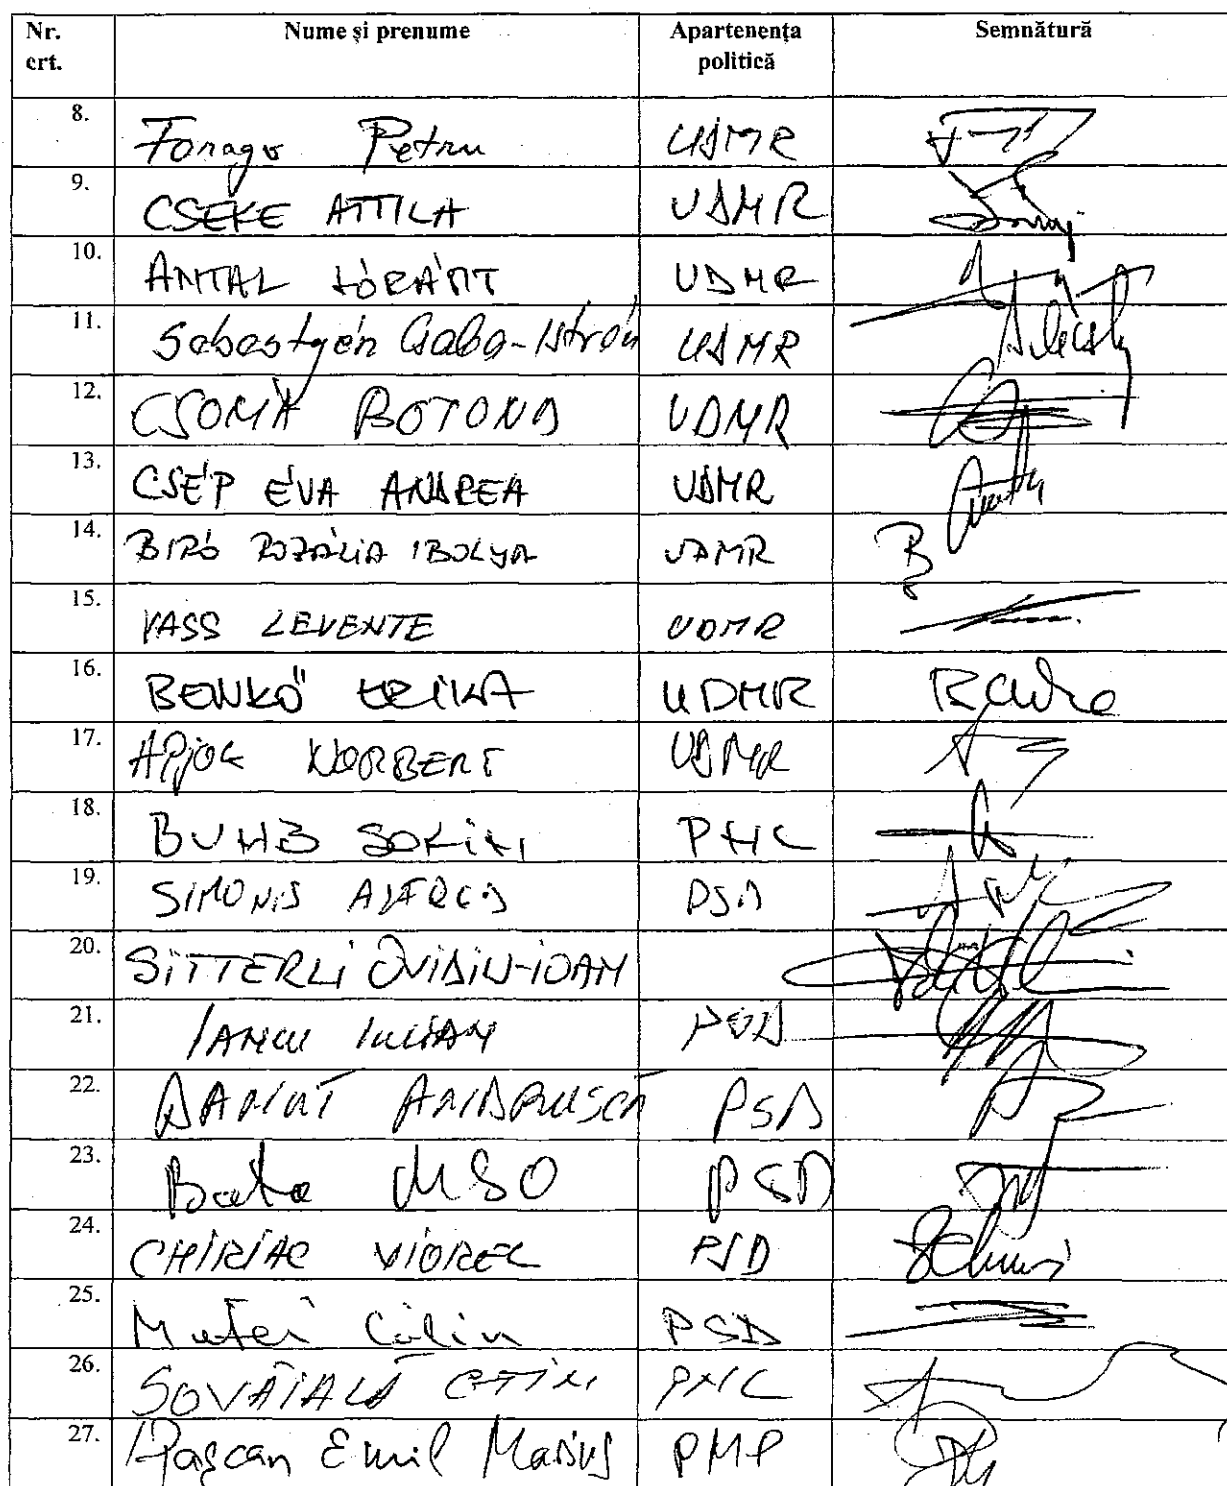 Nr. crt. Nume și prenume Apartenența politică Semnătură
8. Farago Petru UDMR
9. CSEKE ATTILA UDMR
10. ANTAL LÓRÁNT UDMR
11. Sebestyén Csaba-István UDMR
12. CSOMA BOTOND UDMR
13. CSÉP ÉVA ANDREA UDMR
14. BIRÓ ROZÁLIA IBOLYA UDMR
15. VASS LEVENTE UDMR
16. BENKŐ ERIKA UDMR
17. APJOK NORBERT UDMR
18. BUMB SORIN PNL
19. SIMONIS ALFRED PSD
20. SITTERLI OVIDIU-IOAN
21. IANCU IULIAN PSD
22. DANUT ANDRUSCĂ PSD
23. PSD
24. CHIRIAC VIOREL PSD
25. Matei Călin PSD
26. SOVĂIALĂ PNL
27. Pașcan Emil Marius PMP